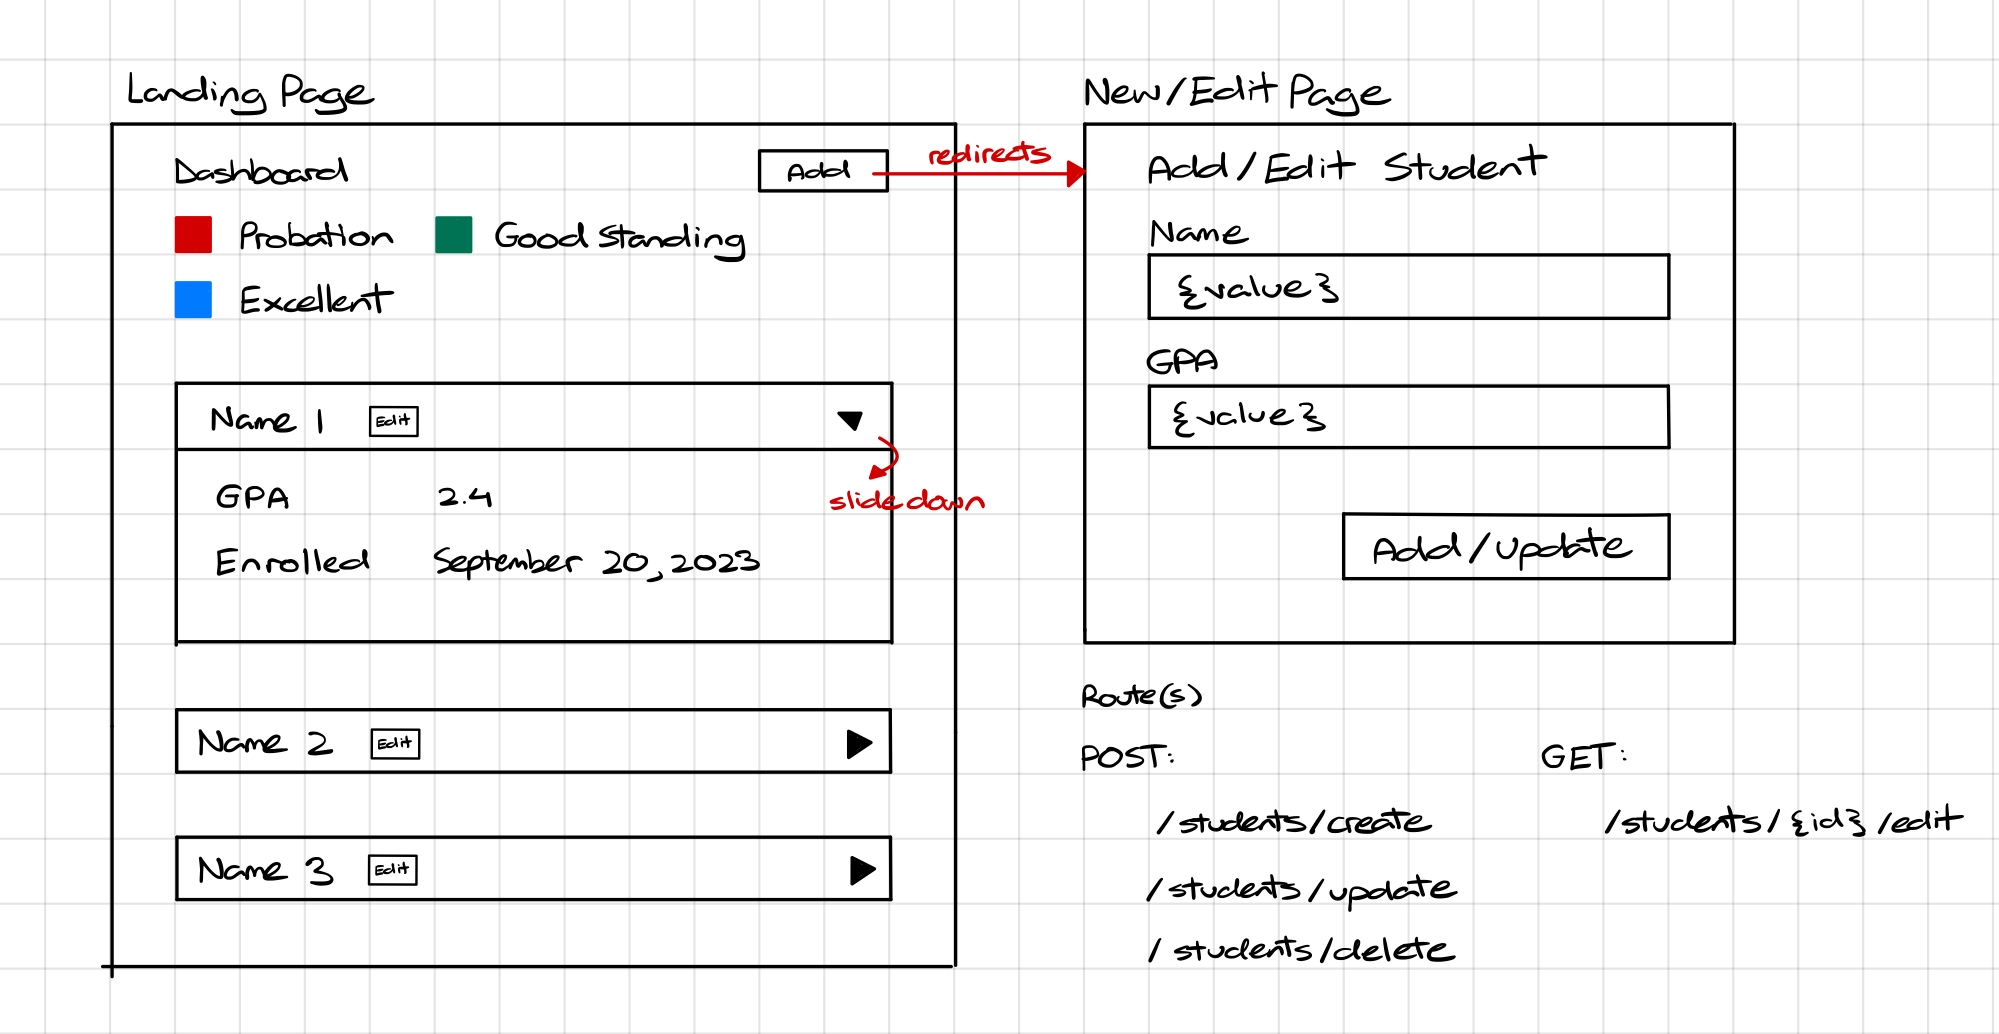 Landing Page
Dashboard
Add
Probation
Good Standing
Excellent
Name 1
Edit
slide down
GPA 2.4
Enrolled September 20, 2023
Name 2
Edit
Name 3
Edit
redirects
New/Edit Page
Add/Edit Student
Name
{value}
GPA
{value}
Add/update
Route(s)
POST:
/students/create
/students/update
/students/delete
GET:
/students/{id}/edit